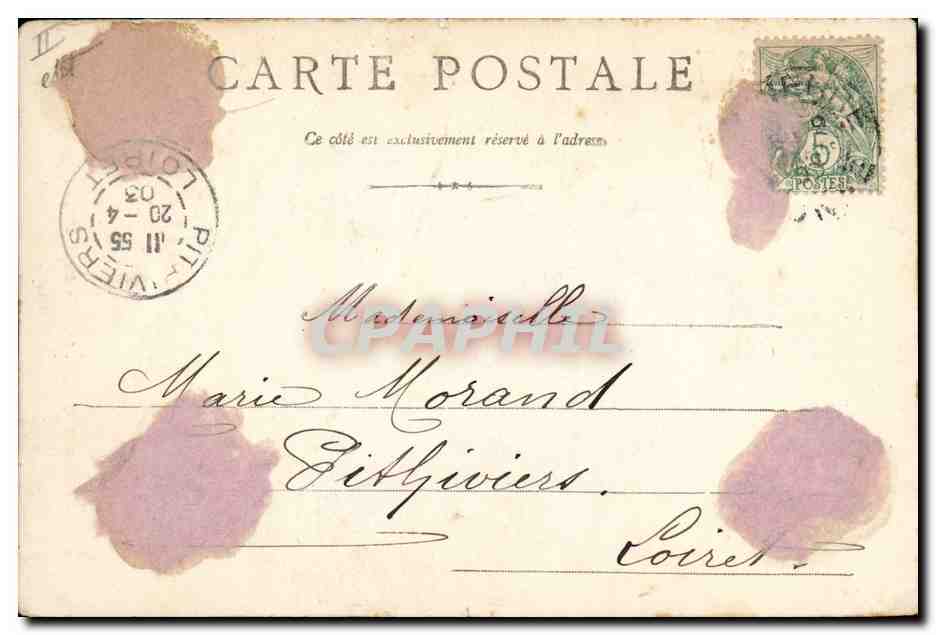 II
CARTE POSTALE
Ce côté est exclusivement réservé à l'adresse
5c
POSTES
PITHIVIERS
LOIRET
11 55
20 - 4
03
CPAPHIL
Mademoiselle
Marie Morand
Pithiviers.
Loiret.